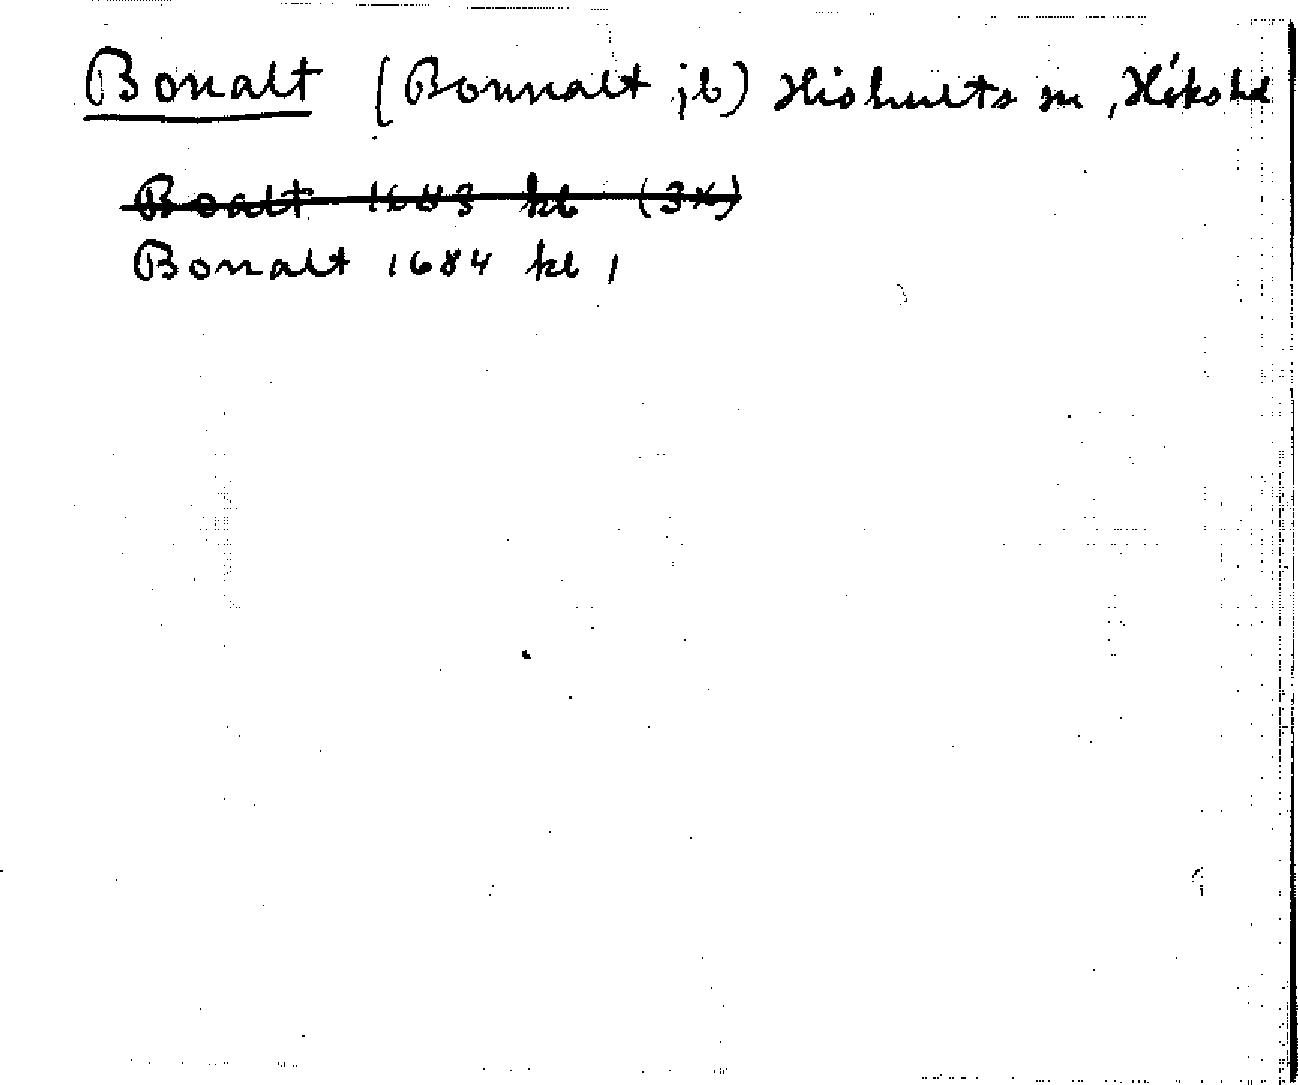 Bonalt (Bonnalt jb) Hishults sn, Höks hd
Boalt 1683 kb (3x)
Bonalt 1684 kb 1